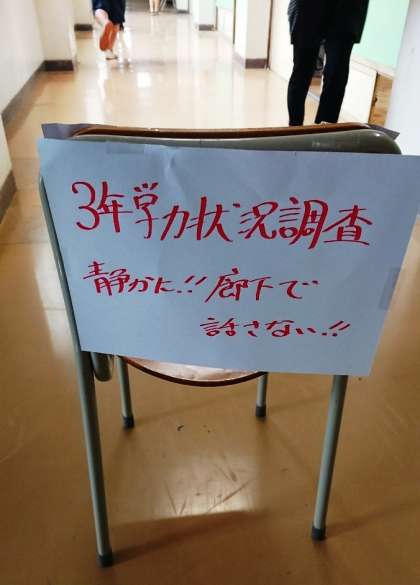 3年学力状況調査
静かに!!廊下で
話さない!!